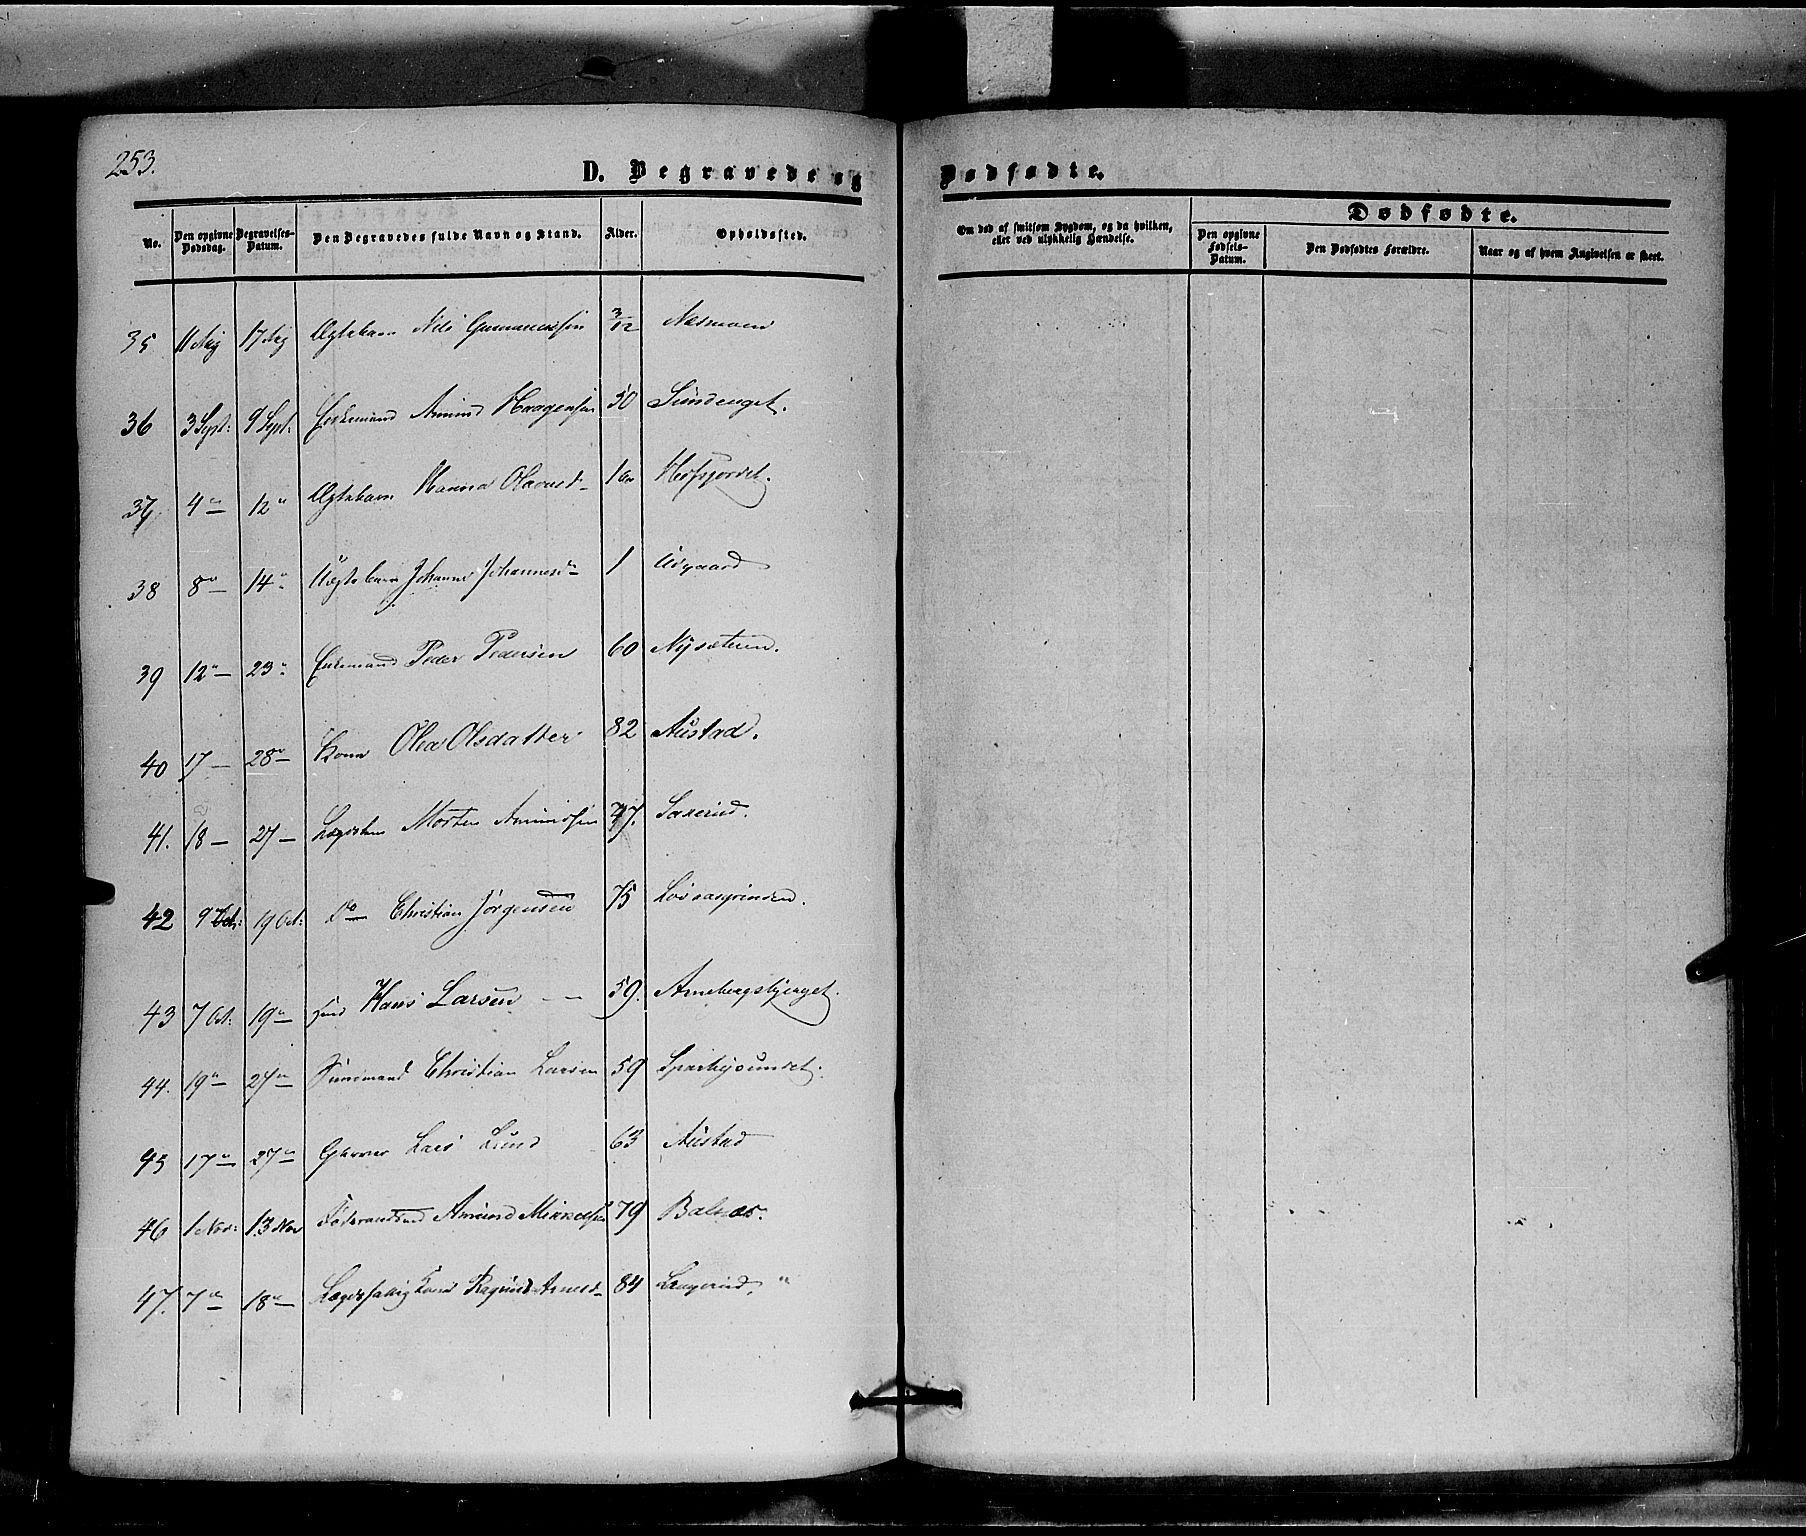 253.
D. Begravede og Dødfødte.
No.
Den opgivne Dødsdag.
Begravelses-Datum.
Den Begravedes fulde Navn og Stand.
Alder.
Opholdssted.
Om død af smitsom Sygdom, og da hvilken, eller ved ulykkelig Hændelse.
Dødfødte.
Den opgivne Fødsels-Datum.
Den Dødfødtes Forældre.
Naar og af hvem Angivelsen er skeet.
35 11 Aug 17 Aug Ægtebarn Nils 3/12 Næsmoen
36 3 Sept: 9 Sept: Amund Haagensen 50 Sundenget.
37 4 " 12 " Ægtebarn Hanna Olavesd 1
38 8 " 14 " Uægtebarn Johanne Johannesd 1
39 12 " 23 " Peder Pedersen 60 Nysæteren.
40 17 — 28 " Kone Olea Olsdatter 82 Austad.
41. 18 — 27 — Lægdslem Morten Amundsen 77. Saxerud.
42 9 Oct: 19 Oct: do Christian Jørgensen 75
43 7 Oct: 19 " Hans Larsen 59.
44. 19 " 27 " Christian Larsen 59
45 17 " 27 " Garver Lars Lund 63 Austad
46 1 Nov: 13 Nov Føderaadsmd Amund Mikkelsen 79 Balnæs.
47. 7 " 18 " Kone Ragnild Arnesd 84